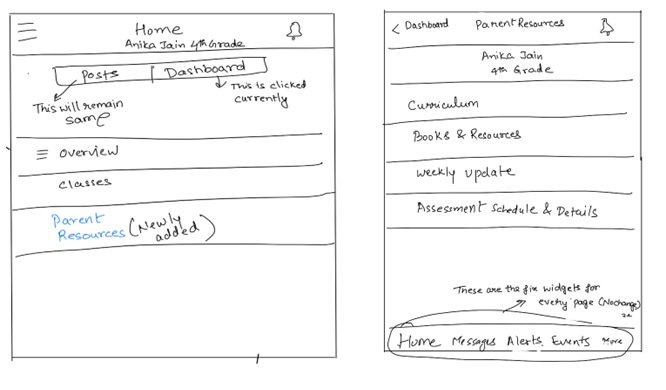 Home
Anika Jain 4th Grade
Posts
Dashboard
This will remain
same
This is clicked
currently
Overview
Classes
Parent
Resources (Newly
added)
< Dashboard
Parent Resources
Anika Jain
4th Grade
Curriculum
Books & Resources
Weekly Update
Assessment Schedule & Details
These are the fix widgets for
every page (No change)
Home Messages Alerts Events More